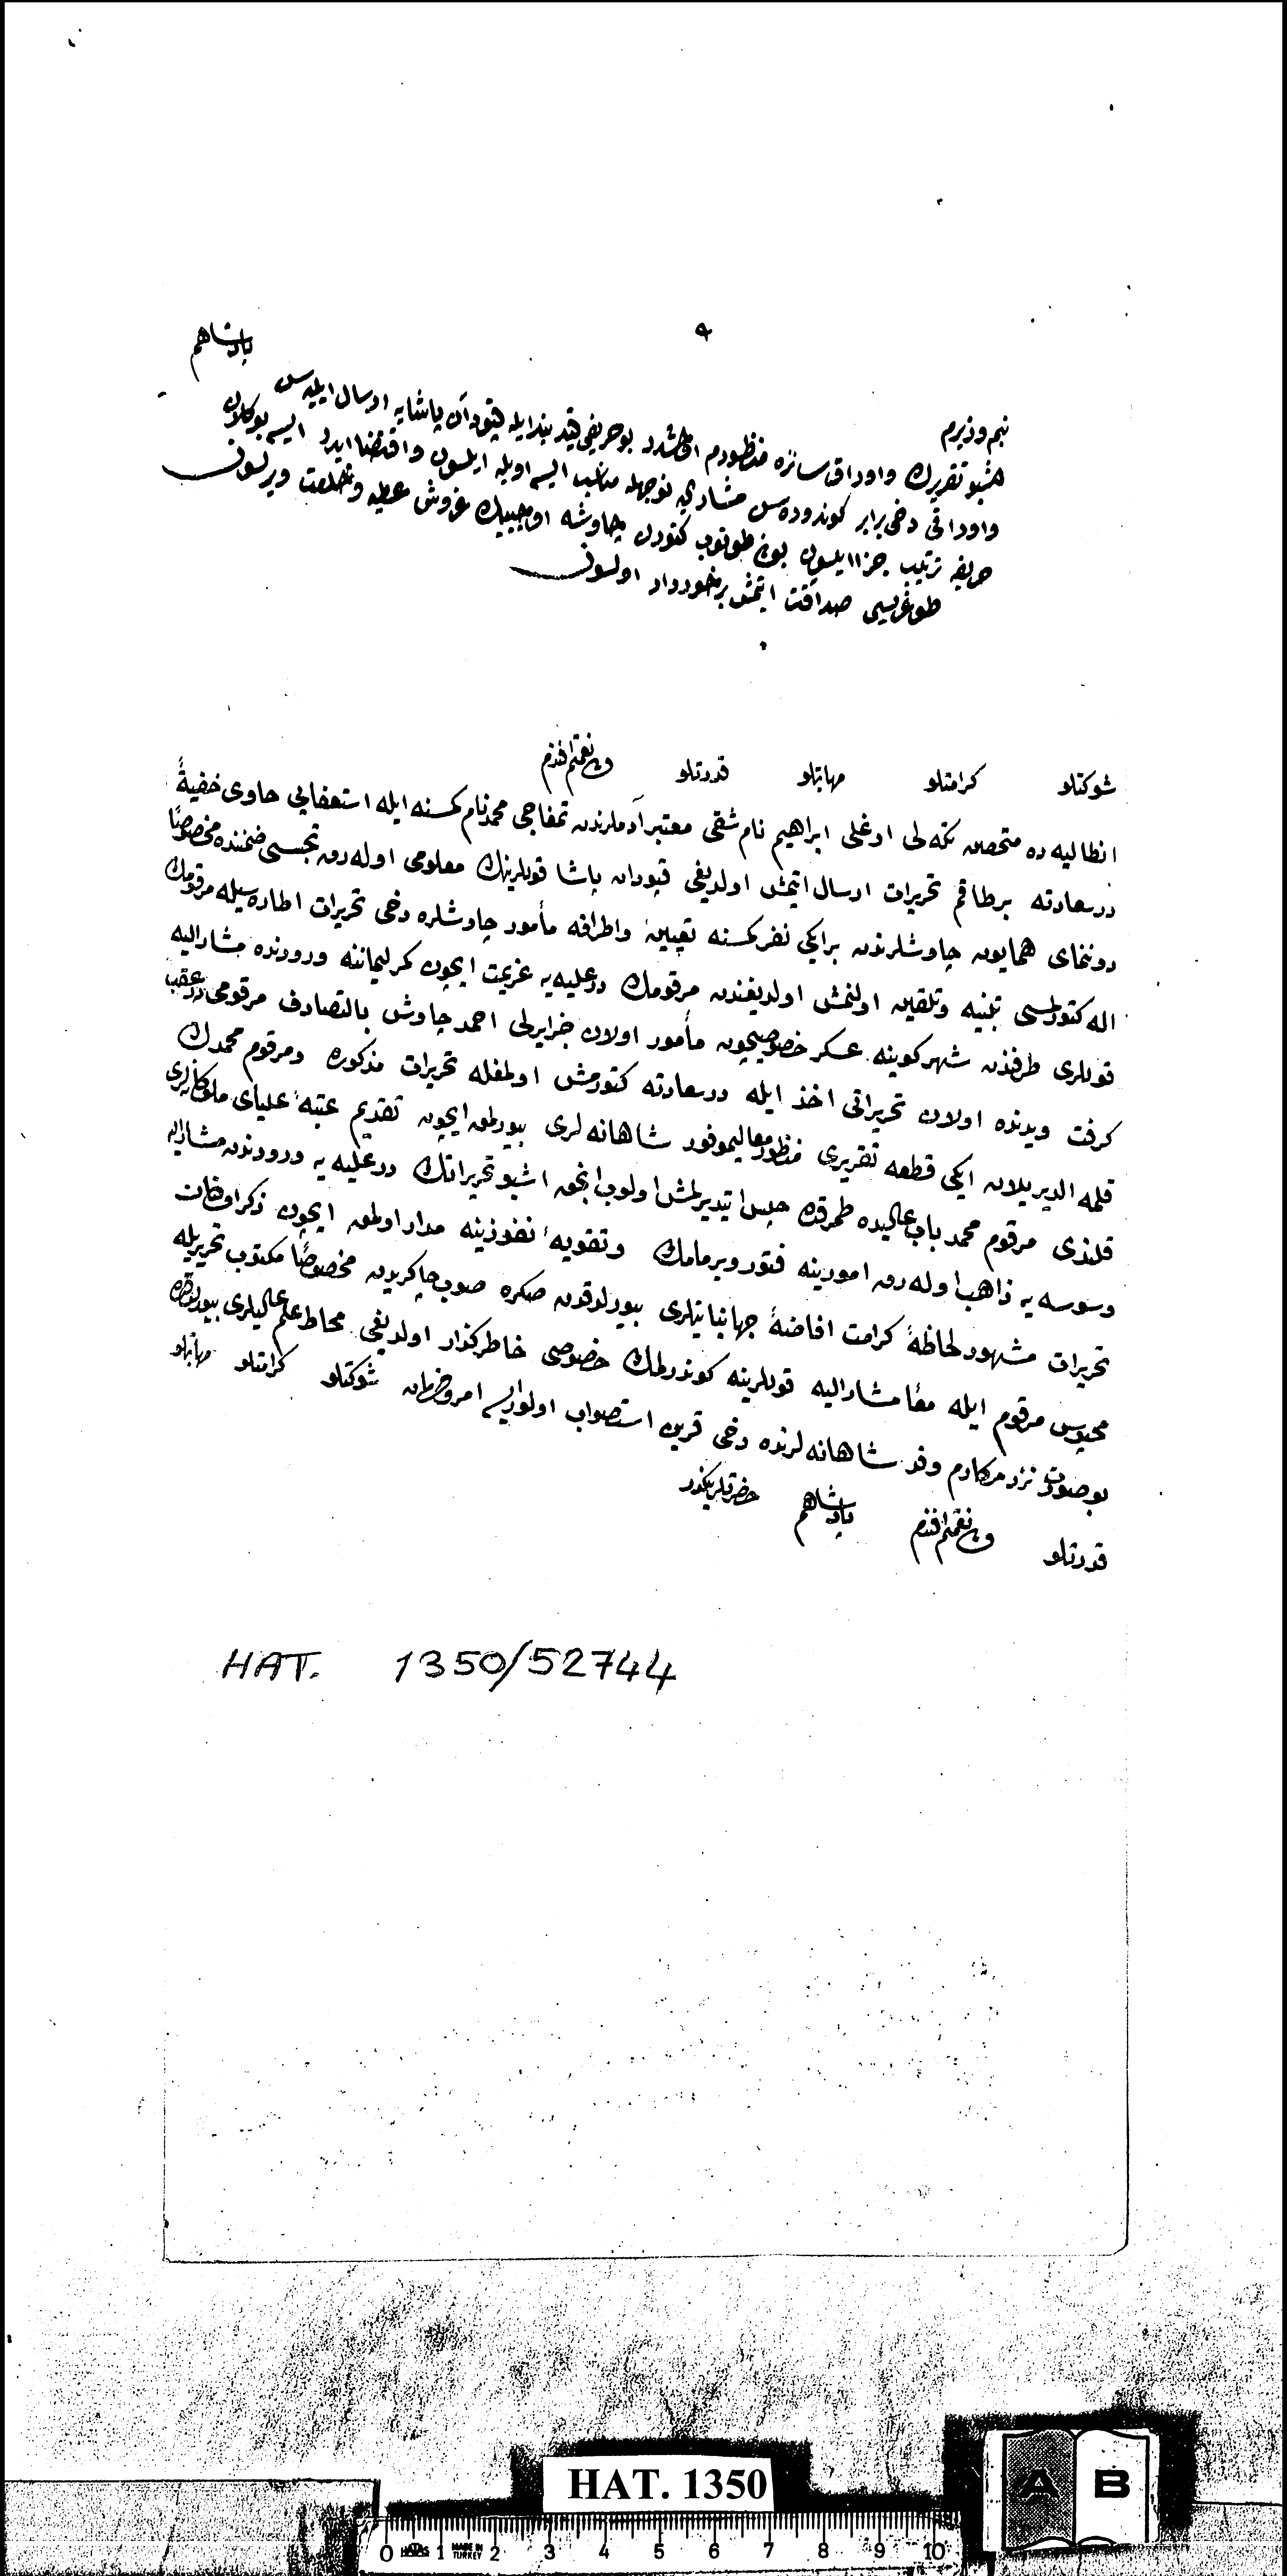 پادشاهم
بنم وزیرم
اشبو تقریرك واوراق سائره منظورم اولمشدر بو حریفی قید بند ایله قپودان پاشایه ارسال ایلیه سن
واوراقی دخی برابر كوندره سن مشار الیه نوجهله مناسب ایسه اویله ایلسون واقتضا ایدر ایسه بو كلان
حریفه ترتیب جزا ایلسون بونی طوتوب كتورن چاوشه اوچ بیك غروش عطیه وخلعت ویرلسون
طوغریسی صداقت ایتمش برخوردار اولسون
شوكتلو كرامتلو مهابتلو قدرتلو ولی نعمتم افندم
انطالیه ده متحصن تكه لی اوغلی ابراهیم نام شقی معتبر آدملرندن تمغاجی محمد نام كسنه ایله استعفایی حاوی خفیةً
درسعادته بر طاقم تحریرات ارسال ایتمش اولدیغی قپودان پاشا قوللرینك معلومی اوله رق تجسسی ضمننده مخصوصًا
دوننمای همایون چاوشلرندن بر ایكی نفر كسنه تعیین واطرافه مأمور چاوشلره دخی تحریرات اطاره سیله مرقومك
اله كتورلمسی تنبیه وتلقین اولنمش اولدیغندن مرقومك درعلیه یه عزیمت ایچون كمر لیماننه ورودنده مشار الیه
قوللری طرفندن شهر كوینه عسكر خصوصیچون مأمور اولان جزایرلی احمد چاوش بالتصادف مرقومی در عقب
كرفت ویدنده اولان تحریراتی اخذ ایله درسعادته كتورمش اولمغله تحریرات مذكوره ومرقوم محمدك
قلمه الدیریلان ایكی قطعه تقریری منظور معالیموفور شاهانه لری بیورلمق ایچون تقدیم عتبهٔ علیای ملوكانه لری
قلندی مرقوم محمد باب عالیده طمرقده حبس ایتدیرلمش اولوب انجق اشبو تحریراتك درعلیه یه ورودندن مشار الیه
وسوسه یه ذاهب اوله رق امورینه فتور ویرمامك وتقویهٔ نفوذینه مدار اولمق ایچون ذكر اولنان
تحریرات مشهود لحاظهٔ كرامت افاضهٔ جهانبانیلری بیورلدقدن صكره صوب چاكریدن مخصوصًا مكتوب تحریریله
محبوس مرقوم ایله معًا مشار الیه قوللرینه كوندرلمك خصوصی خاطركذار اولدیغی محاط علم عالیلری بیورلدقده
بو صورت نزد مكارم وفد شاهانه لرنده دخی قرین استصواب اولور ایسه امر وفرمان شوكتلو كرامتلو مهابتلو
قدرتلو ولی نعمتم افندم پادشاهم حضرتلرینكدر
HAT. 1350/52744
HAT. 1350
A B
0 1 2 3 4 5 6 7 8 9 10
MADE IN TURKEY